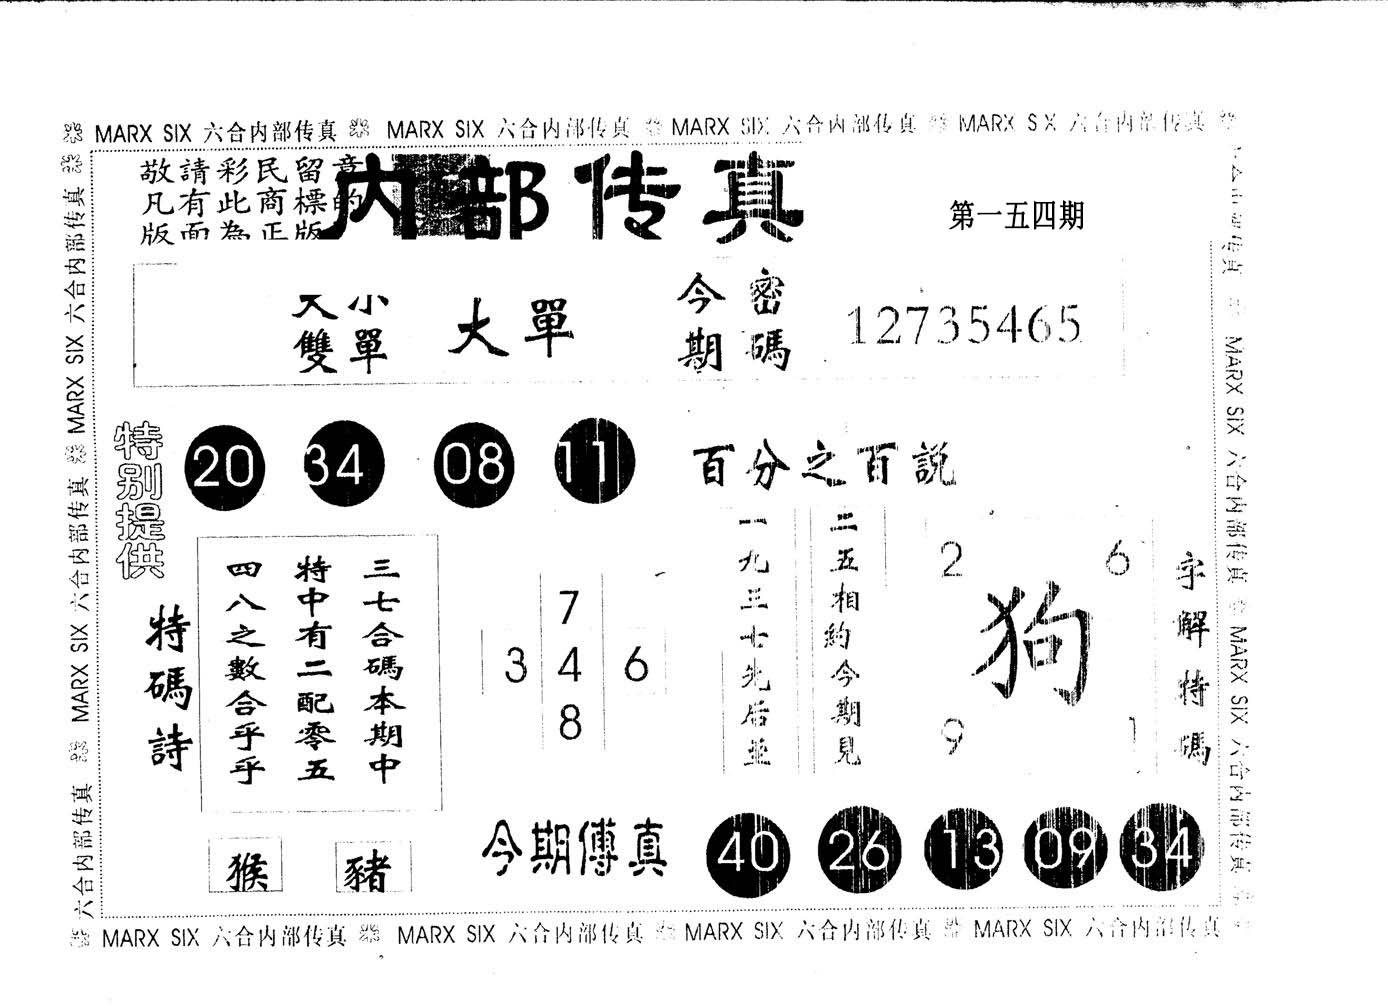 MARX SIX 六合内部传真 MARX SIX 六合内部传真 MARX SIX 六合内部传真 MARX SIX 六合内部传真
敬請彩民留意
凡有此商標的
版面為正版
内部传真
第一五四期
大小
雙單
大單
今期
密碼
12735465
特别提供
20 34 08 11
百分之百説
特碼詩
三七合碼本期中
特中有二配零五
四八之數合乎乎
7
3 4 6
8
二五相約今期見
一九三七先后並
2 6
狗
9 1
字解特碼
猴 豬
今期傳真
40 26 13 09 34
六合内部传真 MARX SIX 六合内部传真 MARX SIX 六合内部传真
MARX SIX 六合内部传真 MARX SIX 六合内部传真
MARX SIX 六合内部传真 MARX SIX 六合内部传真 MARX SIX 六合内部传真 MARX SIX 六合内部传真